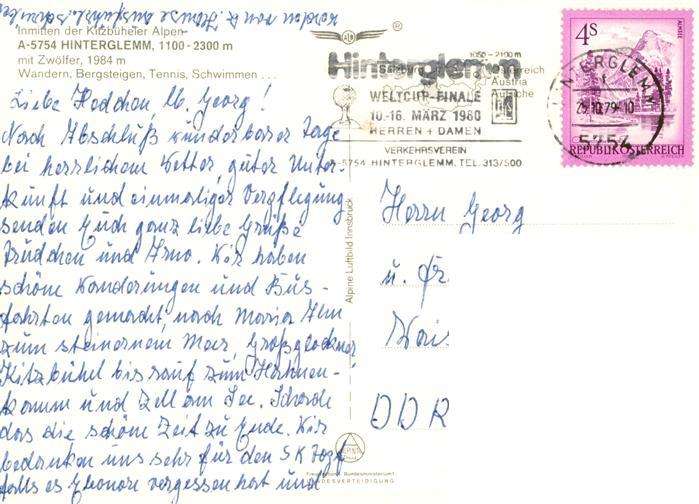 Inmitten der Kitzbüheler Alpen
A-5754 HINTERGLEMM, 1100-2300 m
mit Zwölfer, 1984 m
Wandern, Bergsteigen, Tennis, Schwimmen ...
Liebe Heddchen, lb. Georg!
Nach Abschluß wunderbarer Tage
bei herrlichem Wetter, guter Unter-
kunft und einmaliger Verpflegung
senden Euch ganz liebe Grüße
Trudchen und Arno. Wir haben
schöne Wanderungen und Bus-
fahrten gemacht, nach Maria Alm
zum steinernem Meer, Großglockner
Kitzbühel bis rauf zum Hahnen-
kamm und Zell am See. Schade
das die schöne Zeit zu Ende. Wir
bedanken uns sehr für den SK
falls es Eleonore vergessen hat und
Alpine Luftbild Innsbruck
1050-2100 m
Hinterglemm
WELTCUP-FINALE
10.-16. MÄRZ 1980
HERREN + DAMEN
VERKEHRSVEREIN
A-5754 HINTERGLEMM, TEL. 313/500
Österreich
Austria
Autriche
4S
ALMSEE
REPUBLIK ÖSTERREICH
HINTERGLEMM
25.10.79-10
5754
Herrn Georg
u. Fr.
DDR